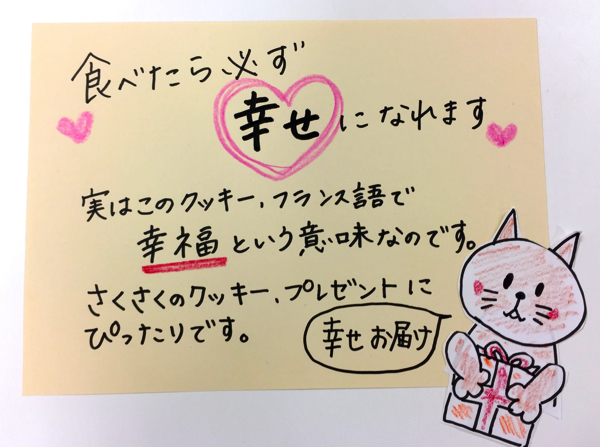 食べたら必ず
幸せになれます
実はこのクッキー、フランス語で
幸福という意味なのです。
さくさくのクッキー、プレゼントに
ぴったりです。
幸せお届け